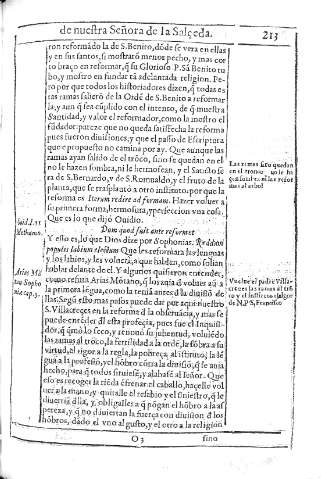 de nuestra Señora de la Salçeda. 213
ron reformado la de S. Benito, dõde se vera en ellas
y en sus santos, si mostrarõ menos pecho, y mas cor
to braço en reformar, q̃ su Glorioso P. Sã Benito tu
bo, y mostro en fundar tã adelantada religion. Pe
ro por que todos los historiadores dizen, q̃ todas es
tas ramas salierõ de la Ordẽ de S. Benito a reformar
la, y aun q̃ sea cũplido con el intento, de q̃ muestra
Santidad, y valor el reformador, como la nuestro el
fũdador: parece que no queda satisfecha la reforma
pues fueron divisiones, y que el passo de Escriptura
que e propuesto no camina por ay. Que aunque las
ramas ayan salido de el trõco, sino se quedan en el
no le hazen sombra, ni le hermosean, y el Sancto se
ra de S. Bernardo, y de S. Romualdo, y el fruto de la
planta, que se trasplauto a otro instituto. por que la
reforma es Iterum redire ad formam. Hazer volver a
su primera forma, hermosura, y perfeccion vna cosa.
Que es lo que dijo Ouidio.
Dum quod fuit ante reformet
Y esto es, lo que Dios dize por Sophonias. Reddam
populis labium electum. Que les reformara las lenguas
y los labios, y les volverà, a que hablen, como solian
hablar delante de el. Y algunos quisieron entender,
como refiera Arias Mõtano, q̃ los auia ď volver aũ a
la primera lẽgua, como la tenia antes ď la diuisiõ de
llas. Segũ esto mas passos puede dar por aqui nuestro
S. Villacreces en la reforma ď la obseruãcia, y mas se
puede entẽder ďl esta profeçia, pues fue el Inquisi-
dor, q̃ qumò lo seco, y renouò su juventud, voluiẽdo
las ramas al trõco, la fertilidad a la ordẽ, la sõbra a su
virtud, el rigor a la regla, la pobreça, al istituto, la lẽ
gua a la professiõ, y el hõbro cõtra la diuisiõ, q̃ le auia
hecho, para q̃ todos siruiesẽ, y alabasẽ al Señor. Que
eso es recoger la riẽda ď frenar el caballo, haçelle vol
uer a la mano, y quitalle el resabio y el siniestro, q̃ le
diuertia ďla, y obligalles a q̃ põgan el hõbro a la as
pereza, y q̃ no diuiertan la fuerça con diuision ď los
hõbros, dãdo el vno al gusto, y el otro a la religiõn
O 3 sino
Las ramas sino quedan
en el tronco
al arbol
Ouid. 1. et
Methamo.
Arias Mõ
tau Sopho
nie cap. 3.
Vuelue el padre Villa-
creces las ramas al trõ
co y el instituto al ser
de N. P. S. Francisco